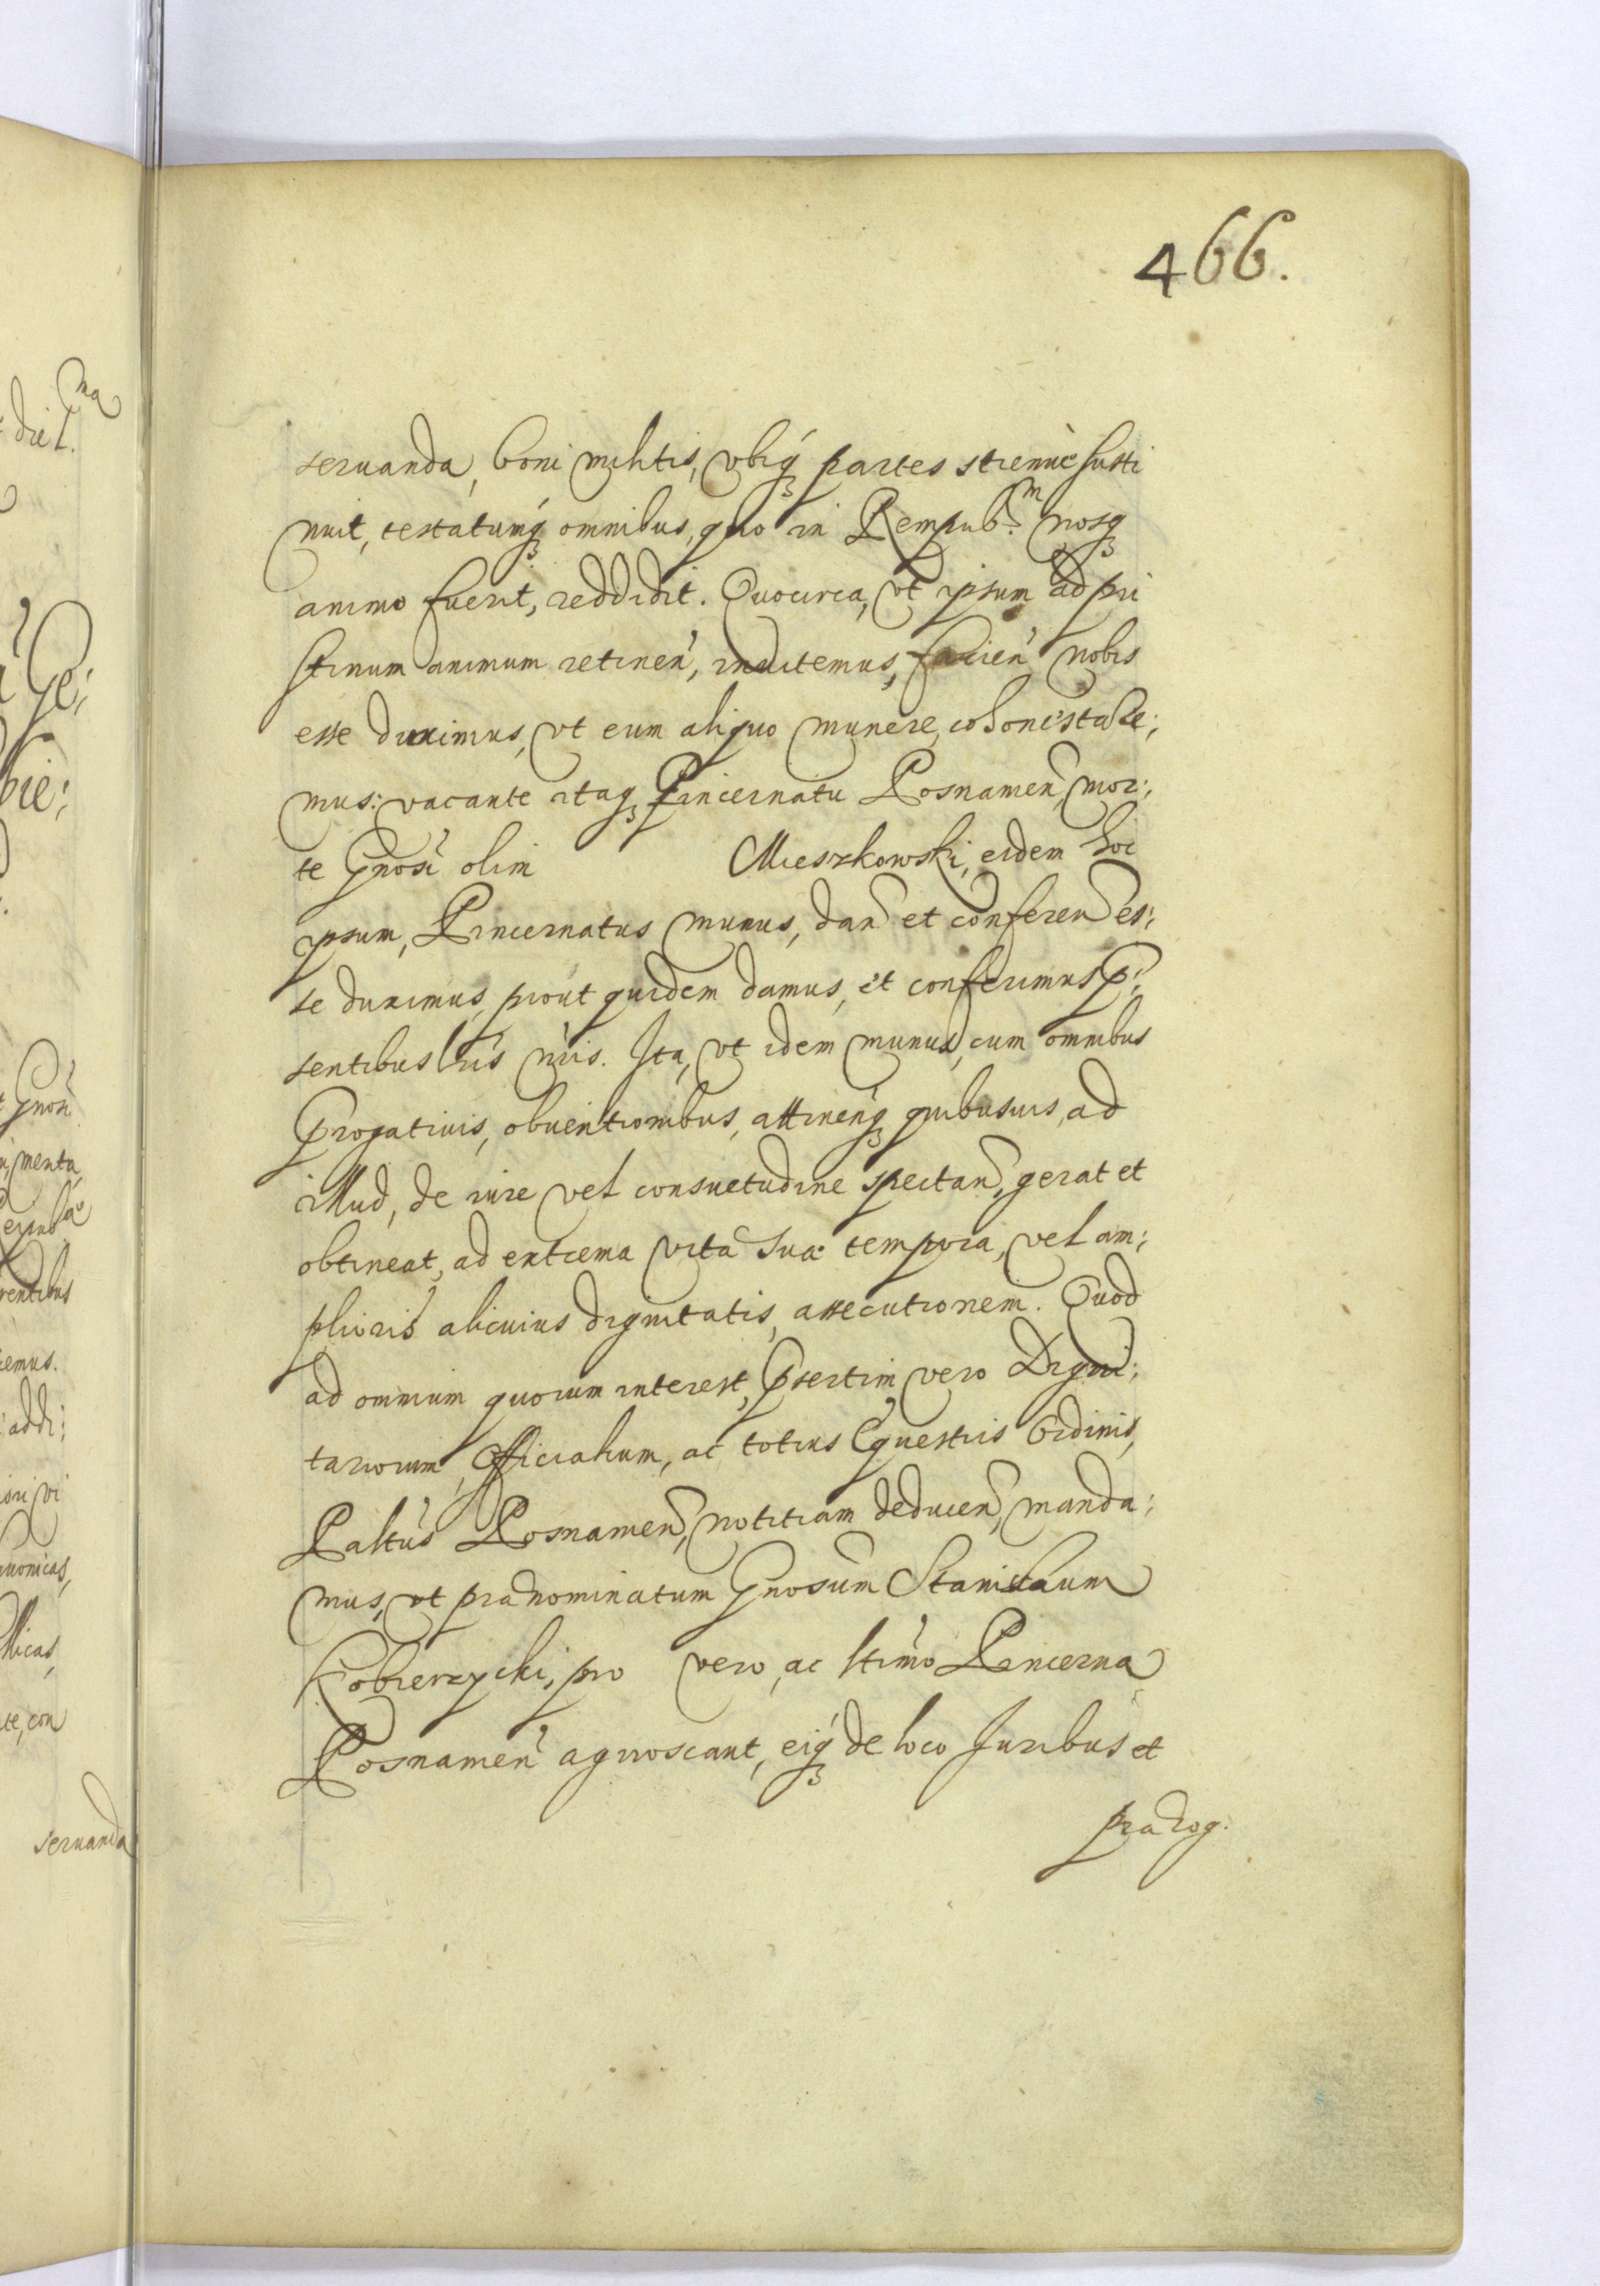 466.
seruanda, boni militis, vbiq́ partes strenuè susti
nuit, testatumq́ omnibus, quo in Rempub.m nosq́
animo fuerit, reddidit. Quocirca, vt ipsum ad pri
stinum animum retinen̄, inuitemus, facien̄ nobis
esse duximus, vt eum aliquo munere, cohonestare;
mus: vacante itaq́ Pincernatu Posnamen̄, mor;
te Gnosi olim Mieszkowski, eidem hoc
ipsum, Pincernatus munus, dan̄ et conferen̄ es;
se duximus, prout quidem damus, et conferimus p̄;
sentibus lris nris. Ita, vt idem munus, cum omnibus
p̄rogatiuis, obuentionibus, attinen̄q́ quibusuis, ad
illud, de iure vel consuetudine spectan̄, gerat et
obtineat, ad extrema vitæ suæ tempora, vel am;
plioris alicuius dignitatis, assecutionem. Quod
ad omnium quorum interest, p̄sertim vero Digni;
tariorum, Officialium, ac totius Equestris Ordinis,
Paltus Posnamen̄, notitiam deducen̄, manda;
mus, vt prænominatum Gnosum Stanislaum
Kobierzycki, pro vero, ac ltimo Pincerna
Posnamen̄ agnoscant, eiq́ de loco Juribus et
prærog.
seruanda